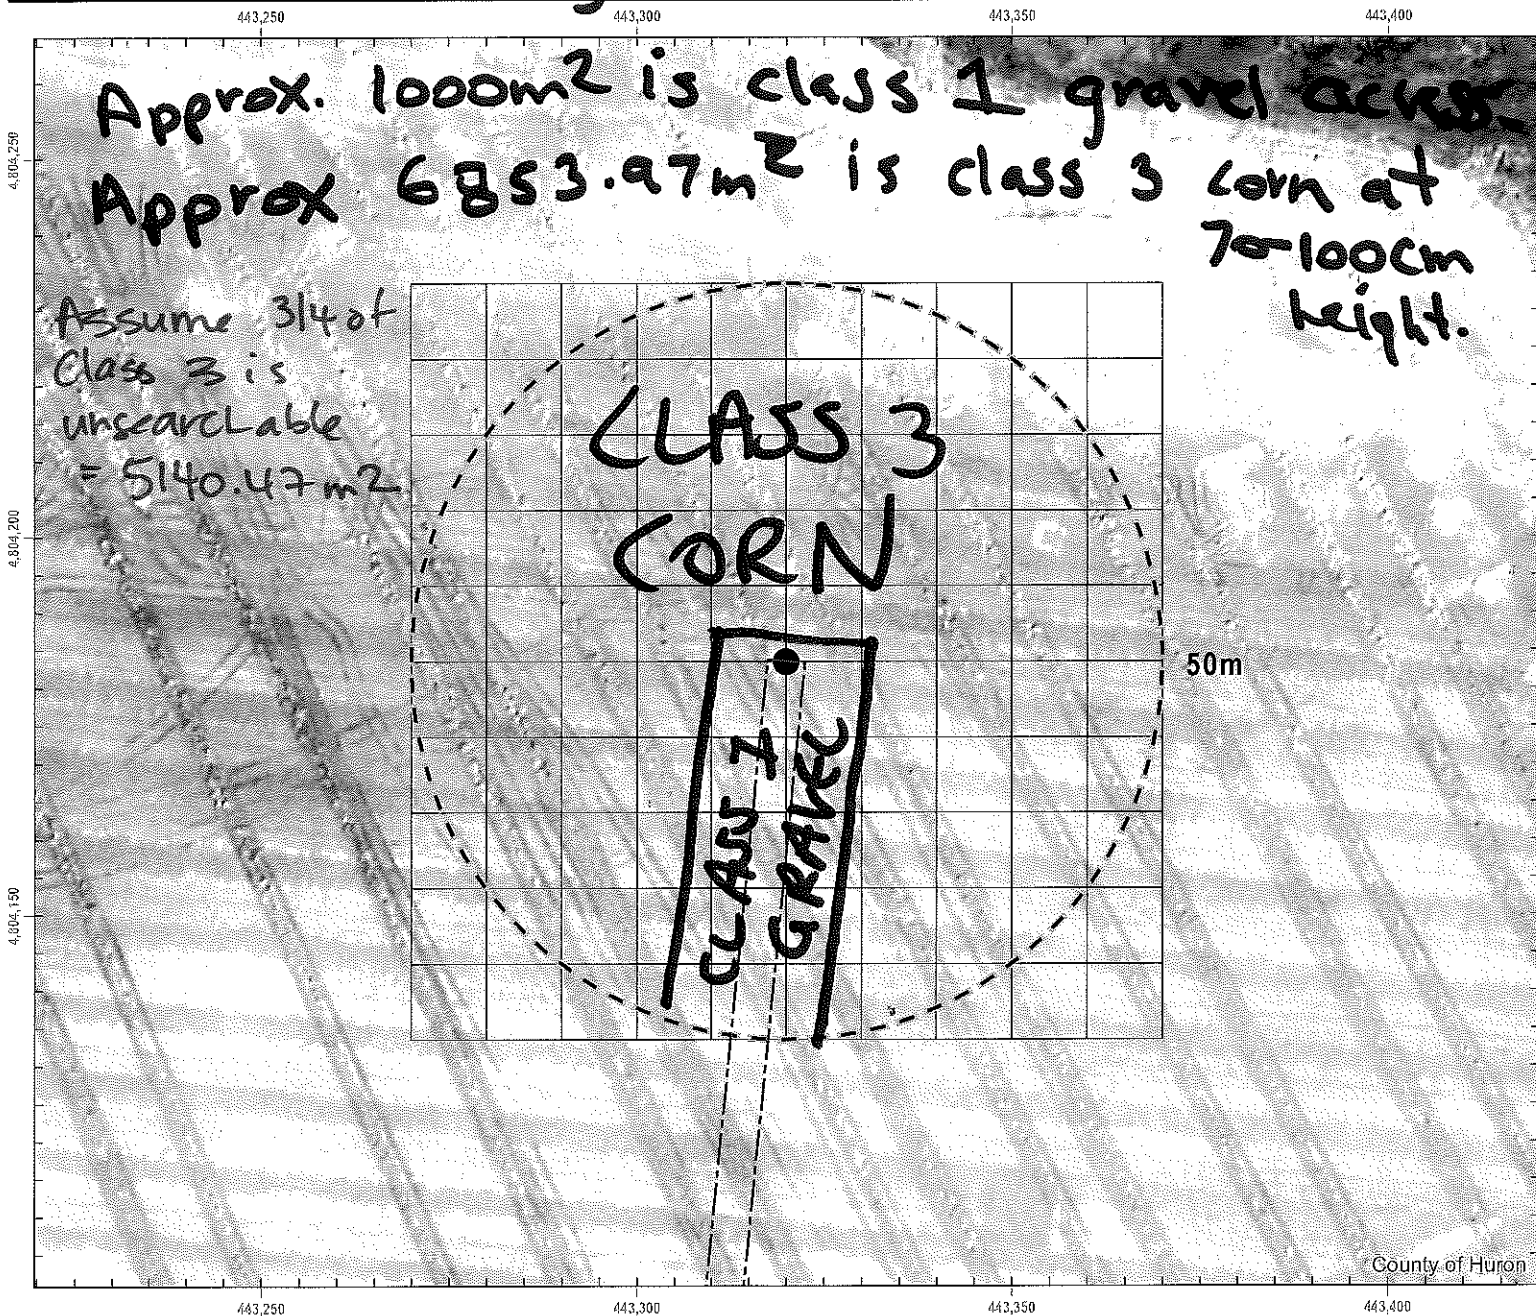 443,250 443,300 443,350 443,400
Approx. 1000m2 is class 1 gravel access
Approx 6853.97m2 is class 3 corn at
70-100cm
height.
4,804,250
Assume 3/4 of
Class 3 is
unsearchable
= 5140.47m2
CLASS 3
CORN
4,804,200
50m
CLASS 1
GRAVEL
4,804,150
County of Huron
443,250 443,300 443,350 443,400